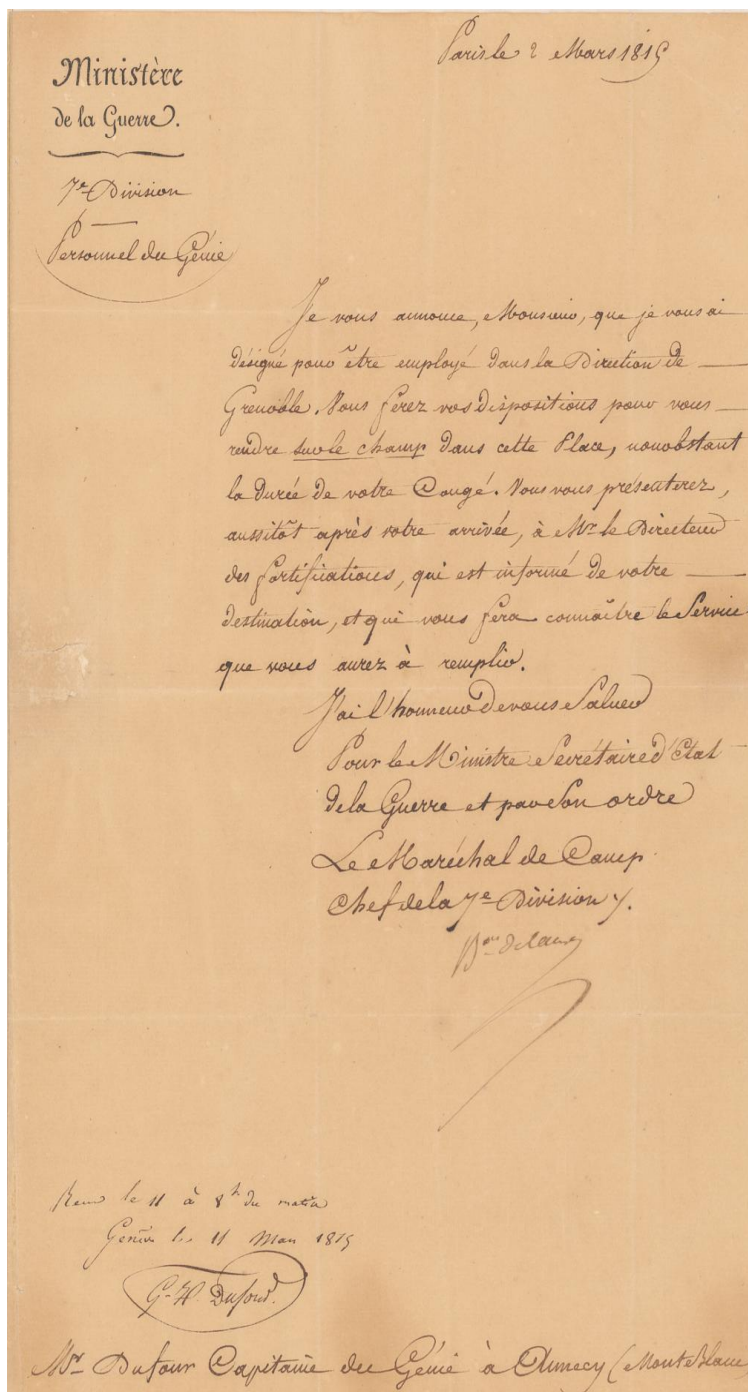 Paris le 2 Mars 1815
Ministère
de la Guerre.
7e Division
Personnel du Génie
Je vous annonce, Monsieur, que je vous ai
désigné pour être employé dans la Direction de
Grenoble. Vous ferez vos dispositions pour vous
rendre sur le champ dans cette Place, nonobstant
la durée de votre Congé. Vous vous présenterez,
aussitôt après votre arrivée, à Mr. le Directeur
des fortifications, qui est informé de votre
destination, et qui vous fera connaître le Service
que vous aurez à remplir.
J'ai l'honneur de vous Saluer
Pour le Ministre Secrétaire d'Etat
de la Guerre et par Son ordre
Le Maréchal de Camp
Chef de la 7e Division
Bon
Reçu le 11 à 8h du matin
Genève le 11 Mars 1815
G. H. Dufour.
Mr Dufour Capitaine du Génie à Annecy (Mont Blanc